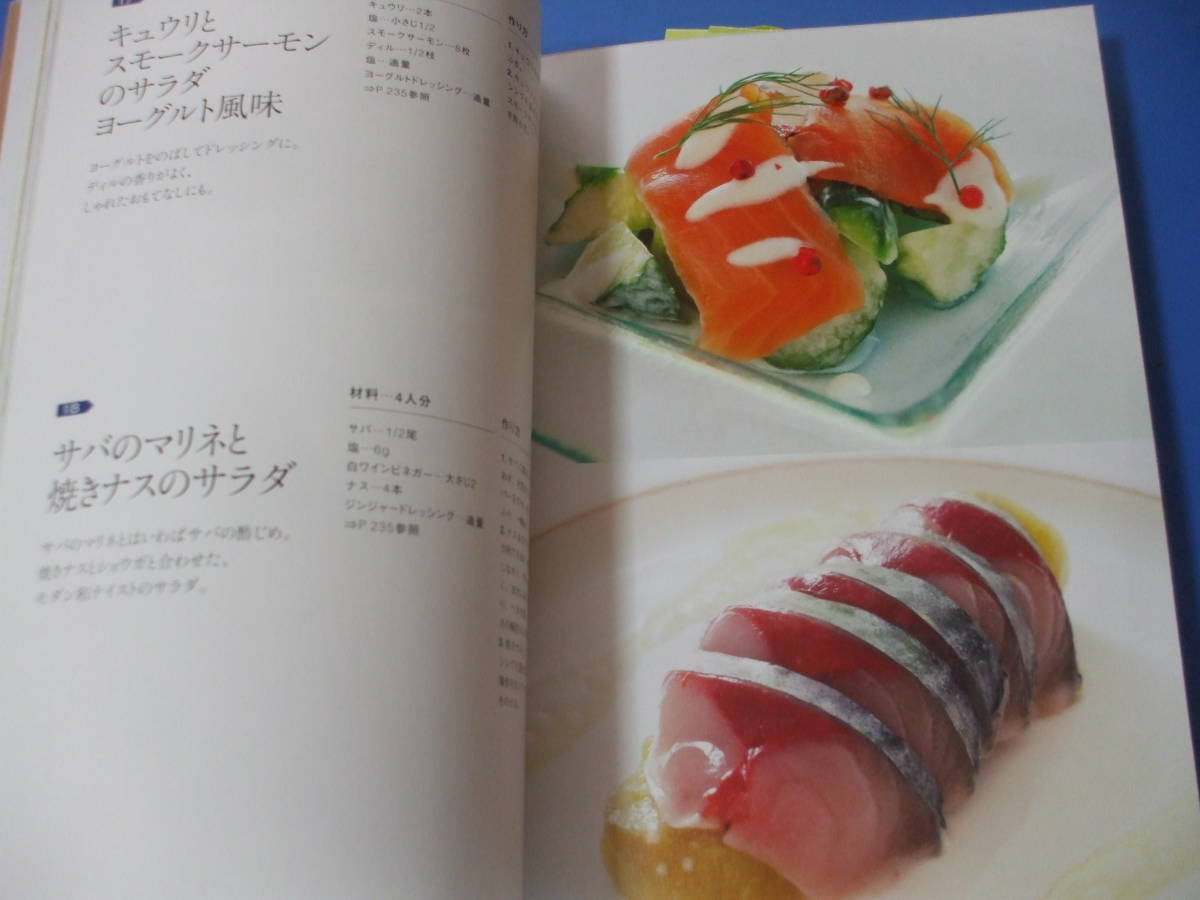 17
キュウリと
スモークサーモン
のサラダ
ヨーグルト風味
ヨーグルトをのばしてドレッシングに。
ディルの香りがよく、
しゃれたおもてなしにも。
キュウリ…2本
塩…小さじ1/2
スモークサーモン…8枚
ディル…1/2枝
塩…適量
ヨーグルトドレッシング…適量
⇒P.235参照
作り方
18
サバのマリネと
焼きナスのサラダ
サバのマリネとはいわばサバの酢じめ。
焼きナスとショウガと合わせた、
モダン和テイストのサラダ。
材料…4人分
サバ…1/2尾
塩…6g
白ワインビネガー…大さじ2
ナス…4本
ジンジャードレッシング…適量
⇒P.235参照
作り方